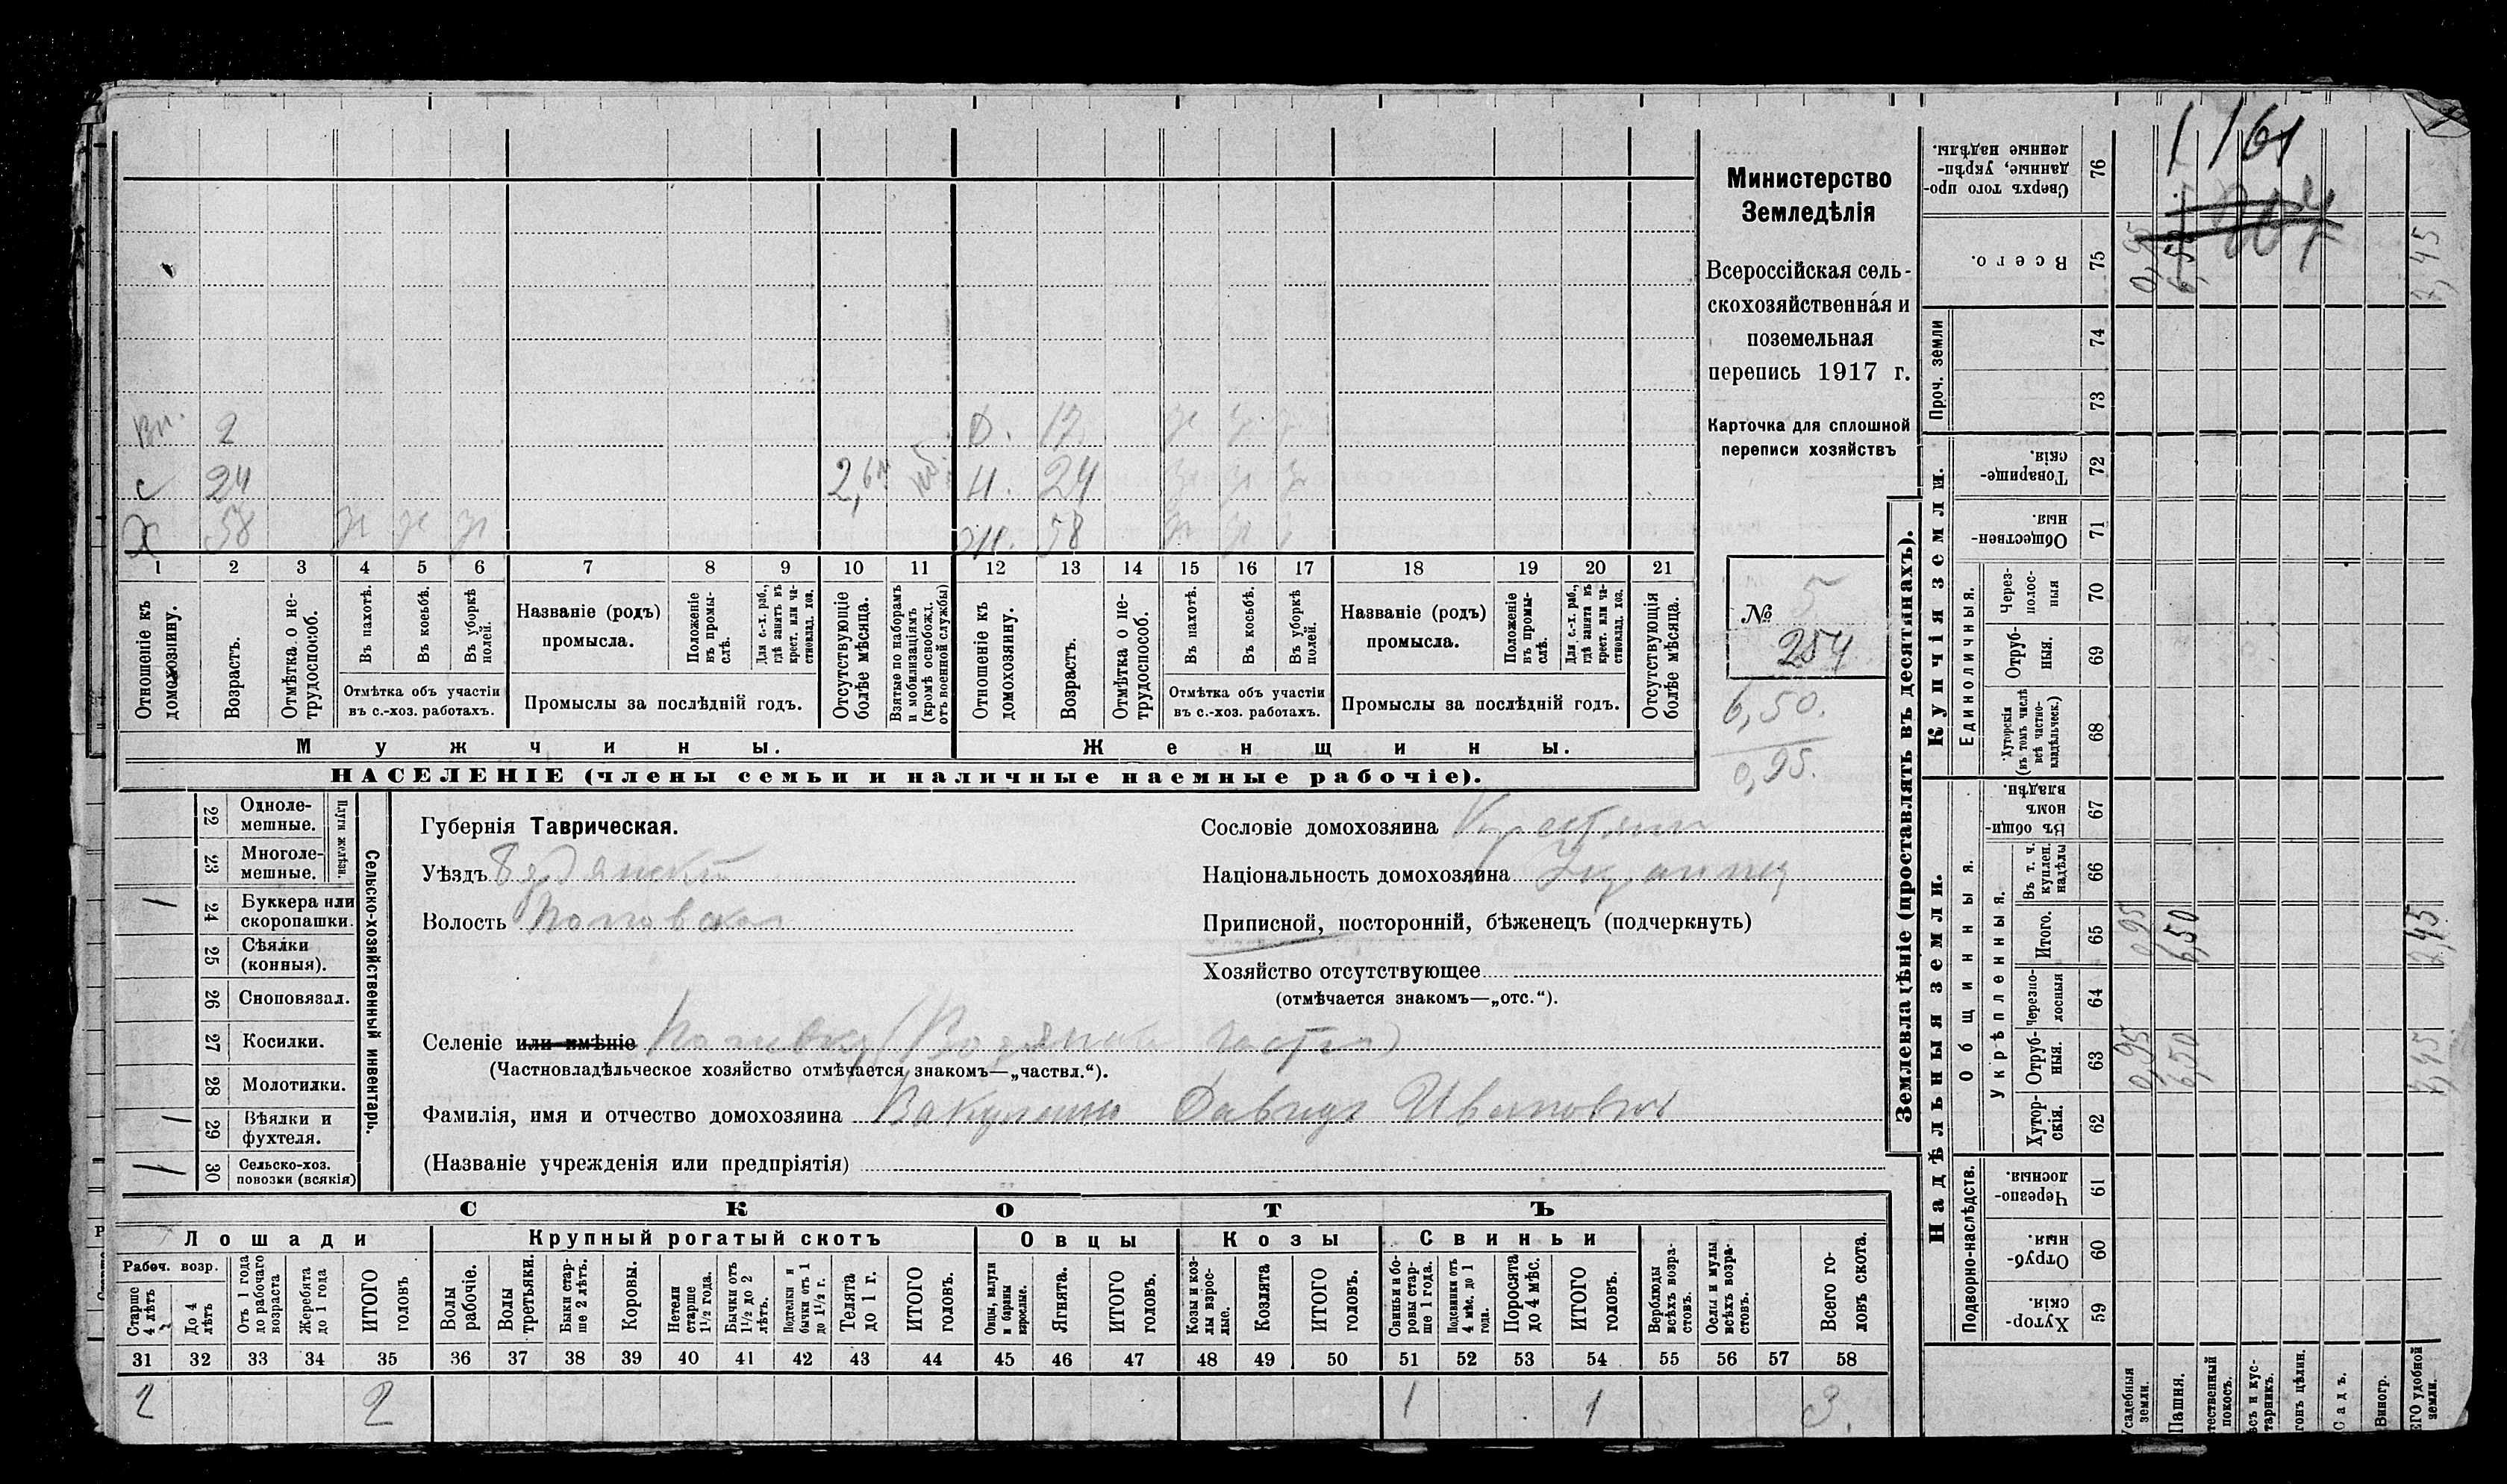 Министерство
Земледѣлія
Всероссійская сель-
скохозяйственная и
поземельная
перепись 1917 г.
Карточка для сплошной
переписи хозяйствъ
№ 5
254
6,50.
0,95.
Вн. 2 Д. 17
с 24 2,6 м Н. 24
Х 58 Ж. 58
1 2 3 4 5 6 7 8 9 10 11 12 13 14 15 16 17 18 19 20 21
Отношеніе къ домохозяину.
Возрастъ.
Отмѣтка о не-трудоспособ.
Въ пахотѣ.
Въ косьбѣ.
Въ уборкѣ полей.
Отмѣтка объ участіи
въ с.-хоз. работахъ.
Названіе (родъ)
промысла.
Положеніе въ промы-слѣ.
Для с.-х. раб., гдѣ занятъ въ крест. или ча-стновлад. хоз.
Промыслы за послѣдній годъ.
Отсутствующіе болѣе мѣсяца.
Взятые по наборамъ и мобилизаціямъ (кромѣ освобожд. отъ военной службы)
Отношеніе къ домохозяину.
Возрастъ.
Отмѣтка о не-трудоспособ.
Въ пахотѣ.
Въ косьбѣ.
Въ уборкѣ полей.
Отмѣтка объ участіи
въ с.-хоз. работахъ.
Названіе (родъ)
промысла.
Положеніе въ промы-слѣ.
Для с.-х. раб., гдѣ занята въ крест. или ча-стновлад. хоз.
Промыслы за послѣдній годъ.
Отсутствующія болѣе мѣсяца.
Мужчины.
Женщины.
НАСЕЛЕНІЕ (члены семьи и наличные наемные рабочіе).
22 Одноле-мешные.
23 Многоле-мешные.
Плуги желѣзн.
1 24 Буккера или скоропашки.
25 Сѣялки (конныя).
26 Сноповязал.
27 Косилки.
28 Молотилки.
1 29 Вѣялки и фухтеля.
1 30 Сельско-хоз. повозки (всякія)
Сельско-хозяйственный инвентарь.
Губернія Таврическая.
Уѣздъ Бердянскій
Волость Поповская
Селеніе или имѣніе Поповка (Водяная часть)
(Частновладѣльческое хозяйство отмѣчается знакомъ—„частвл.“).
Фамилія, имя и отчество домохозяина Вакуленко Давидъ Ивановичъ
(Названіе учрежденія или предпріятія)
Сословіе домохозяина Крестьян
Національность домохозяина Украинец
Приписной, посторонній, бѣженецъ (подчеркнуть)
Хозяйство отсутствующее
(отмѣчается знакомъ—„отс.“).
СКОТЪ
Лошади
Крупный рогатый скотъ
Овцы
Козы
Свиньи
Рабоч. возр.
Старше 4 лѣтъ
До 4 лѣтъ
Отъ 1 года до рабочаго возраста
Жеребята до 1 года
ИТОГО головъ
Волы рабочіе.
Волы третьяки.
Быки стар-ше 2 лѣтъ.
Коровы.
Нетели старше 1½ года.
Бычки отъ 1½ до 2 лѣтъ.
Подтелки и бычки отъ 1 до 1½ г.
Телята до 1 г.
ИТОГО головъ.
Овцы, валухи и бараны взрослые.
Ягнята.
ИТОГО головъ.
Козы и коз-лы взрос-лые.
Козлята
ИТОГО головъ.
Свиньи и бо-ровы стар-ше 1 года.
Подсвинки отъ 4 мѣс. до 1 года.
Поросята до 4 мѣс.
ИТОГО головъ.
Верблюды всѣхъ возра-стовъ.
Ослы и мулы всѣхъ возра-стовъ.
Всего го-ловъ скота.
31 32 33 34 35 36 37 38 39 40 41 42 43 44 45 46 47 48 49 50 51 52 53 54 55 56 57 58
2 2 1 1 3.
Землевладѣніе (проставлять въ десятинахъ).
1 161
76 Сверхъ того про-данные, укрѣп-ленные надѣлы.
75 Всего. 0,95 6,50 7,45
Проч. земли
74
73
Купчія земли.
72 Товарище-скія.
71 Обществен-ныя.
Единоличныя.
70 Через-полос-ныя
69 Отруб-ныя.
68 Хуторскія (въ томъ числѣ всѣ частно-владѣльческ.)
Надѣльныя земли.
Общинныя.
67 Въ общи-номъ владѣн.
Укрѣпленныя.
66 Въ т. ч. куплен. надѣлы
65 Итого. 0,95 6,50 7,45
64 Черезпо-лосныя
63 Отруб-ныя. 0,95 6,50 7,45
62 Хутор-скія.
Подворно-наслѣдств.
61 Черезпо-лосныя.
60 Отруб-ныя.
59 Хутор-скія.
усадебныя земли.
Пашня.
тественный покосъ.
съ и кус-тарникъ.
гонъ цѣлин.
Садъ.
Виногр.
ЕГО удобной земли.